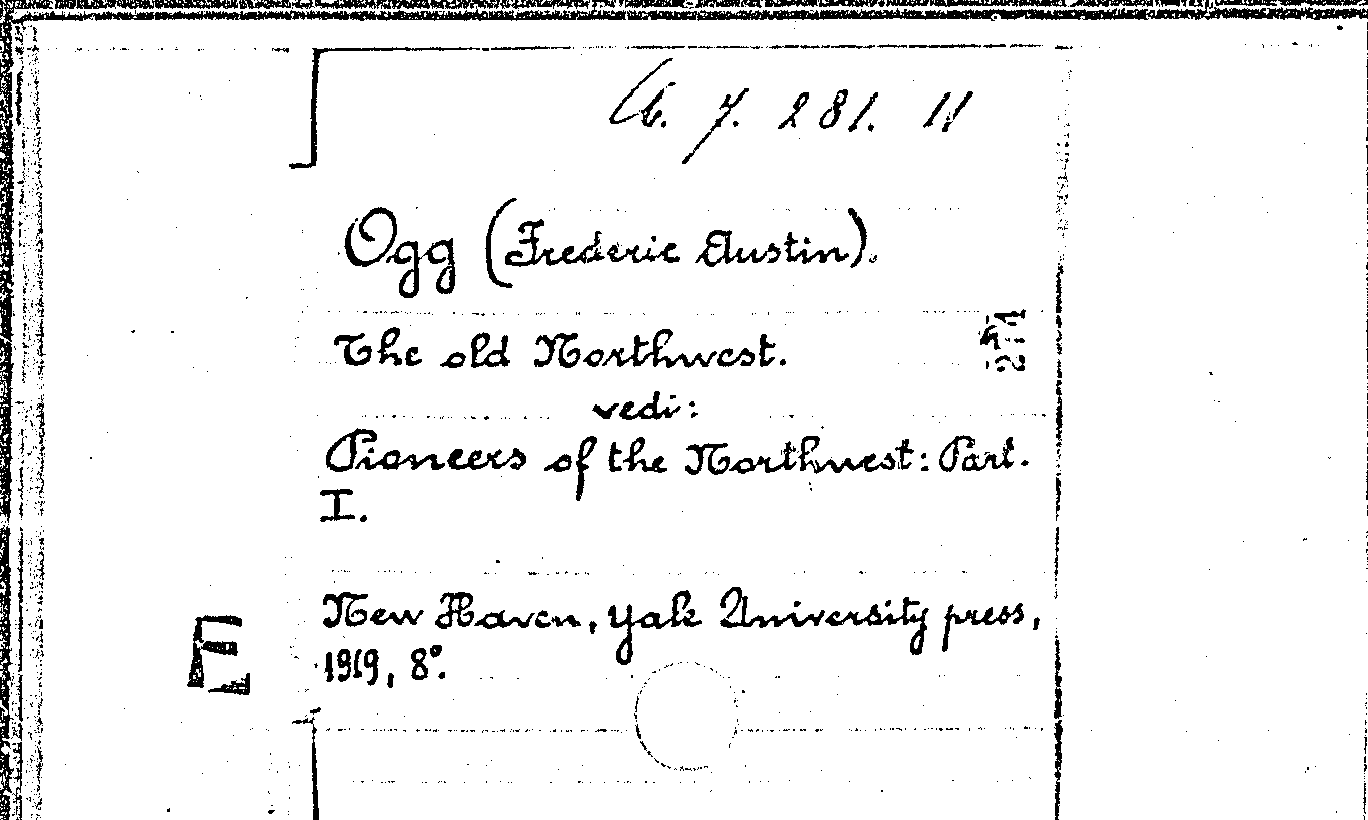 7. 281. 11
Ogg (Frederic Austin).
The old Northwest.
271
vedi:
Pioneers of the Northwest: Part.
I.
New Haven, Yale University press,
E
1919, 8°.